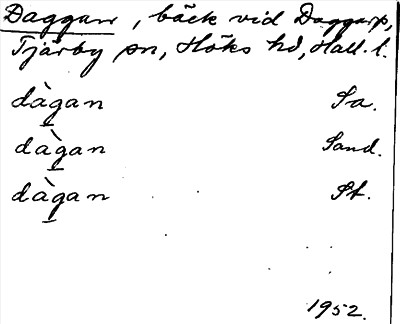 Daggan, bäck vid Daggarp,
Tjärby sn, Höks hd, Hall. l.
dàgan Sa.
dàgan Sand.
dàgan St.
1952.